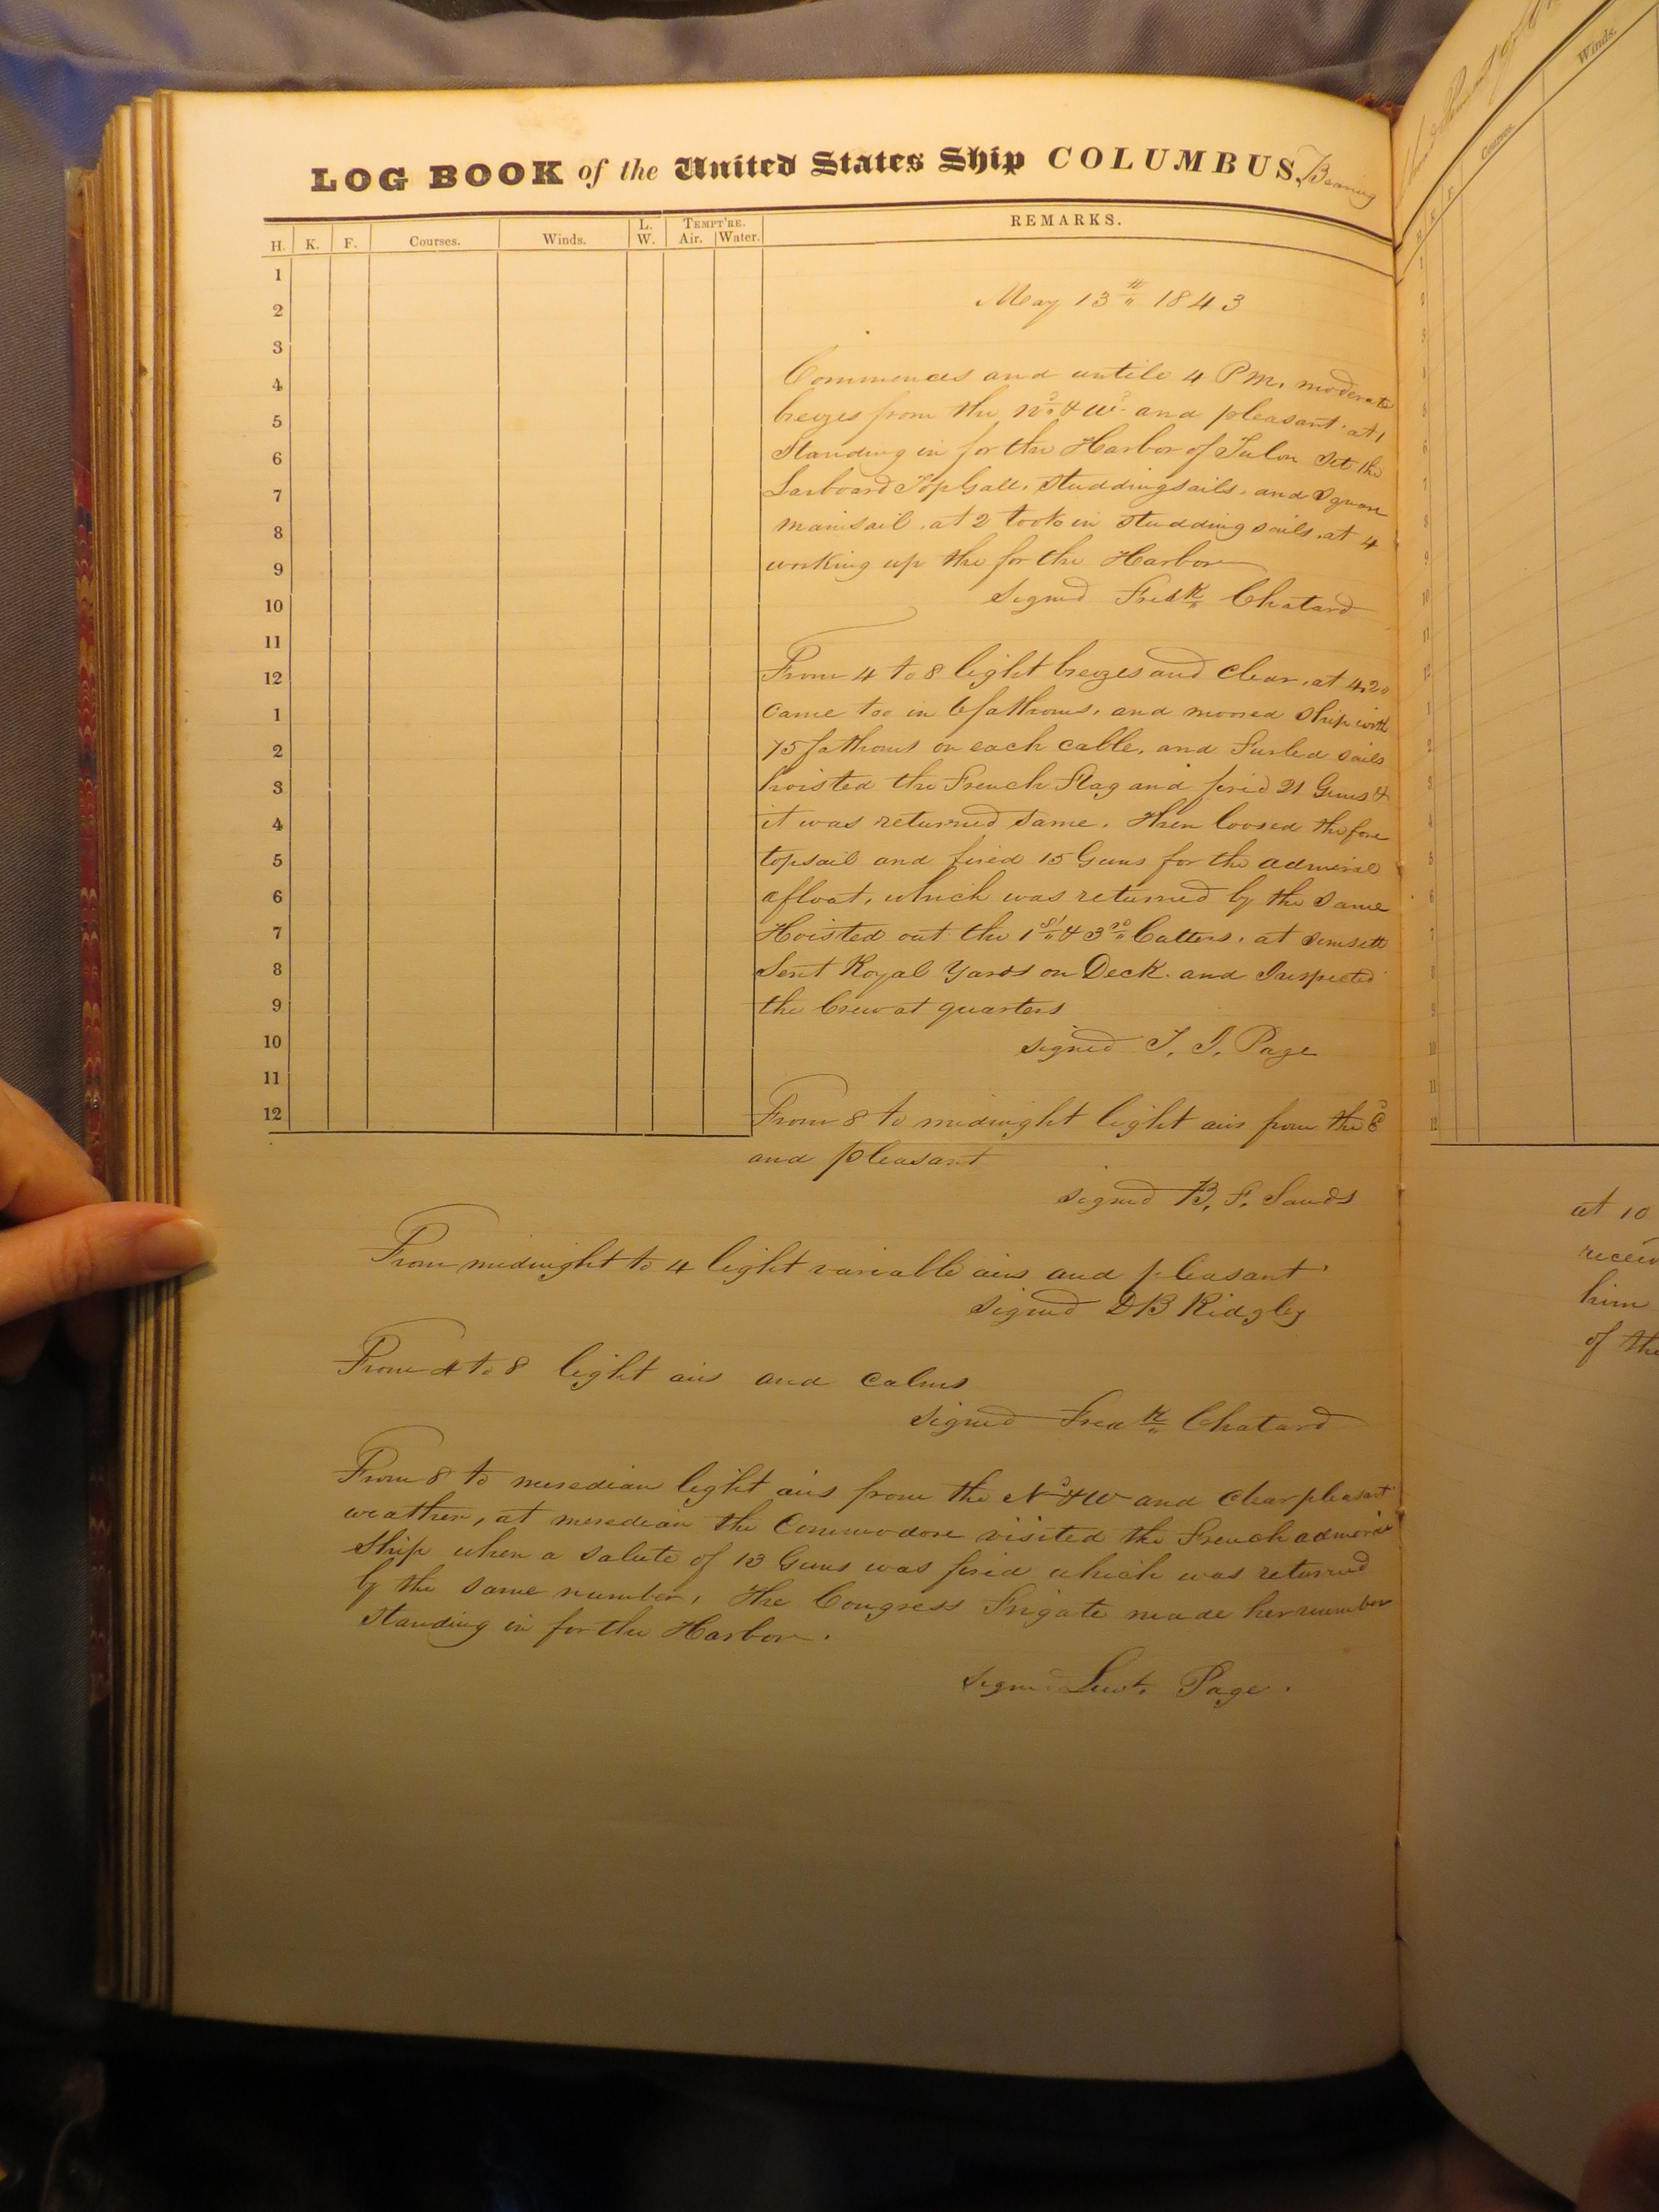 LOG BOOK of the United States Ship COLUMBUS, Bearing
H. K. F. Courses. Winds. L. W. TEMPT'RE. Air. Water. REMARKS.
1
2
3
4
5
6
7
8
9
10
11
12
1
2
3
4
5
6
7
8
9
10
11
12
May 13th 1843
Commences and untile 4 PM. moderate
breezes from the Nd & Wd and pleasant. at 1
Standing in for the Harbor of Tulon Set the
Larboard TopGall. Studdingsails. and Square
mainsail. at 2 took in studding sails. at 4
working up the for the Harbor
Signed Fredk Chatard
From 4 to 8 light breezes and Clear. at 4.20
Came too in 6 fathoms. and moored Ship with
75 fathoms on each cable. and Furled sails
hoisted the French Flag and fired 21 Guns &
it was returned same. then loosed the fore
topsail and fired 15 Guns for the admiral
afloat. which was returned by the same
Hoisted out the 1st & 3rd Cutters. at sunsett
Sent Royal Yards on Deck. and Inspected
the Crew at quarters
signed T. J. Page
From 8 to midnight light airs from the Ed
and pleasant
signed B. F. Sands
From midnight to 4 light variable airs and pleasant
signed DB Ridgley
From 4 to 8 light airs and calms
signed Fredk Chatard
From 8 to meredian light airs from the Nd & W and Clear pleasant
weather, at meredian the Commodore visited the French admiral
Ship when a salute of 13 Guns was fired which was returned
by the same number. The Congress Frigate made her number
standing in for the Harbor.
Signd Lieut. Page.
Winds.
Courses.
1
2
3
4
5
6
7
8
9
10
11
12
1
2
3
4
5
6
7
8
9
10
11
12
at 10
him
of the